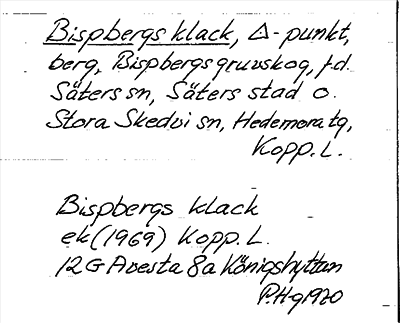 Bispbergs klack, Δ-punkt,
berg, Bispbergsgruvskog, f.d.
Säters sn, Säters stad o.
Stora Skedvi sn, Hedemora tg,
Kopp. L.
Bispbergs klack
ek (1969) Kopp. L.
12G Avesta 8a Königshyttan
P.Hg 1970